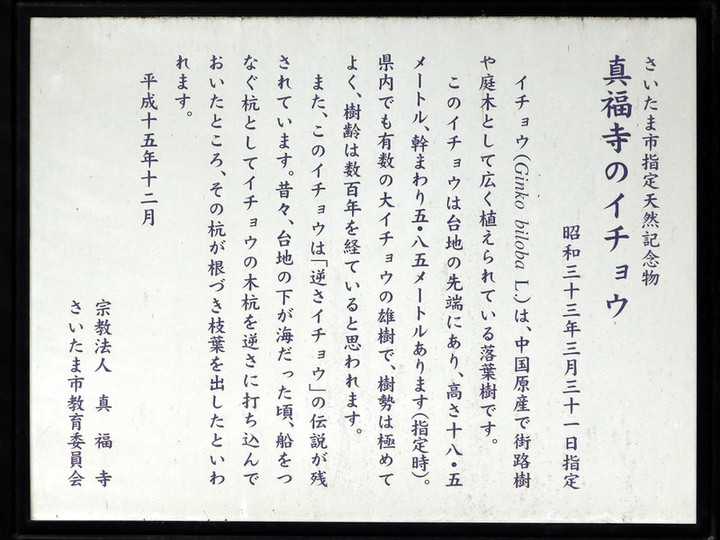 さいたま市指定天然記念物
真福寺のイチョウ
昭和三十三年三月三十一日指定
イチョウ(Ginko biloba L.)は、中国原産で街路樹
や庭木として広く植えられている落葉樹です。
このイチョウは台地の先端にあり、高さ十八・五
メートル、幹まわり五・八五メートルあります(指定時)。
県内でも有数の大イチョウの雄樹で、樹勢は極めて
よく、樹齢は数百年を経ていると思われます。
また、このイチョウは「逆さイチョウ」の伝説が残
されています。昔々、台地の下が海だった頃、船をつ
なぐ杭としてイチョウの木杭を逆さに打ち込んで
おいたところ、その杭が根づき枝葉を出したといわ
れます。
平成十五年十二月
宗教法人 真福寺
さいたま市教育委員会